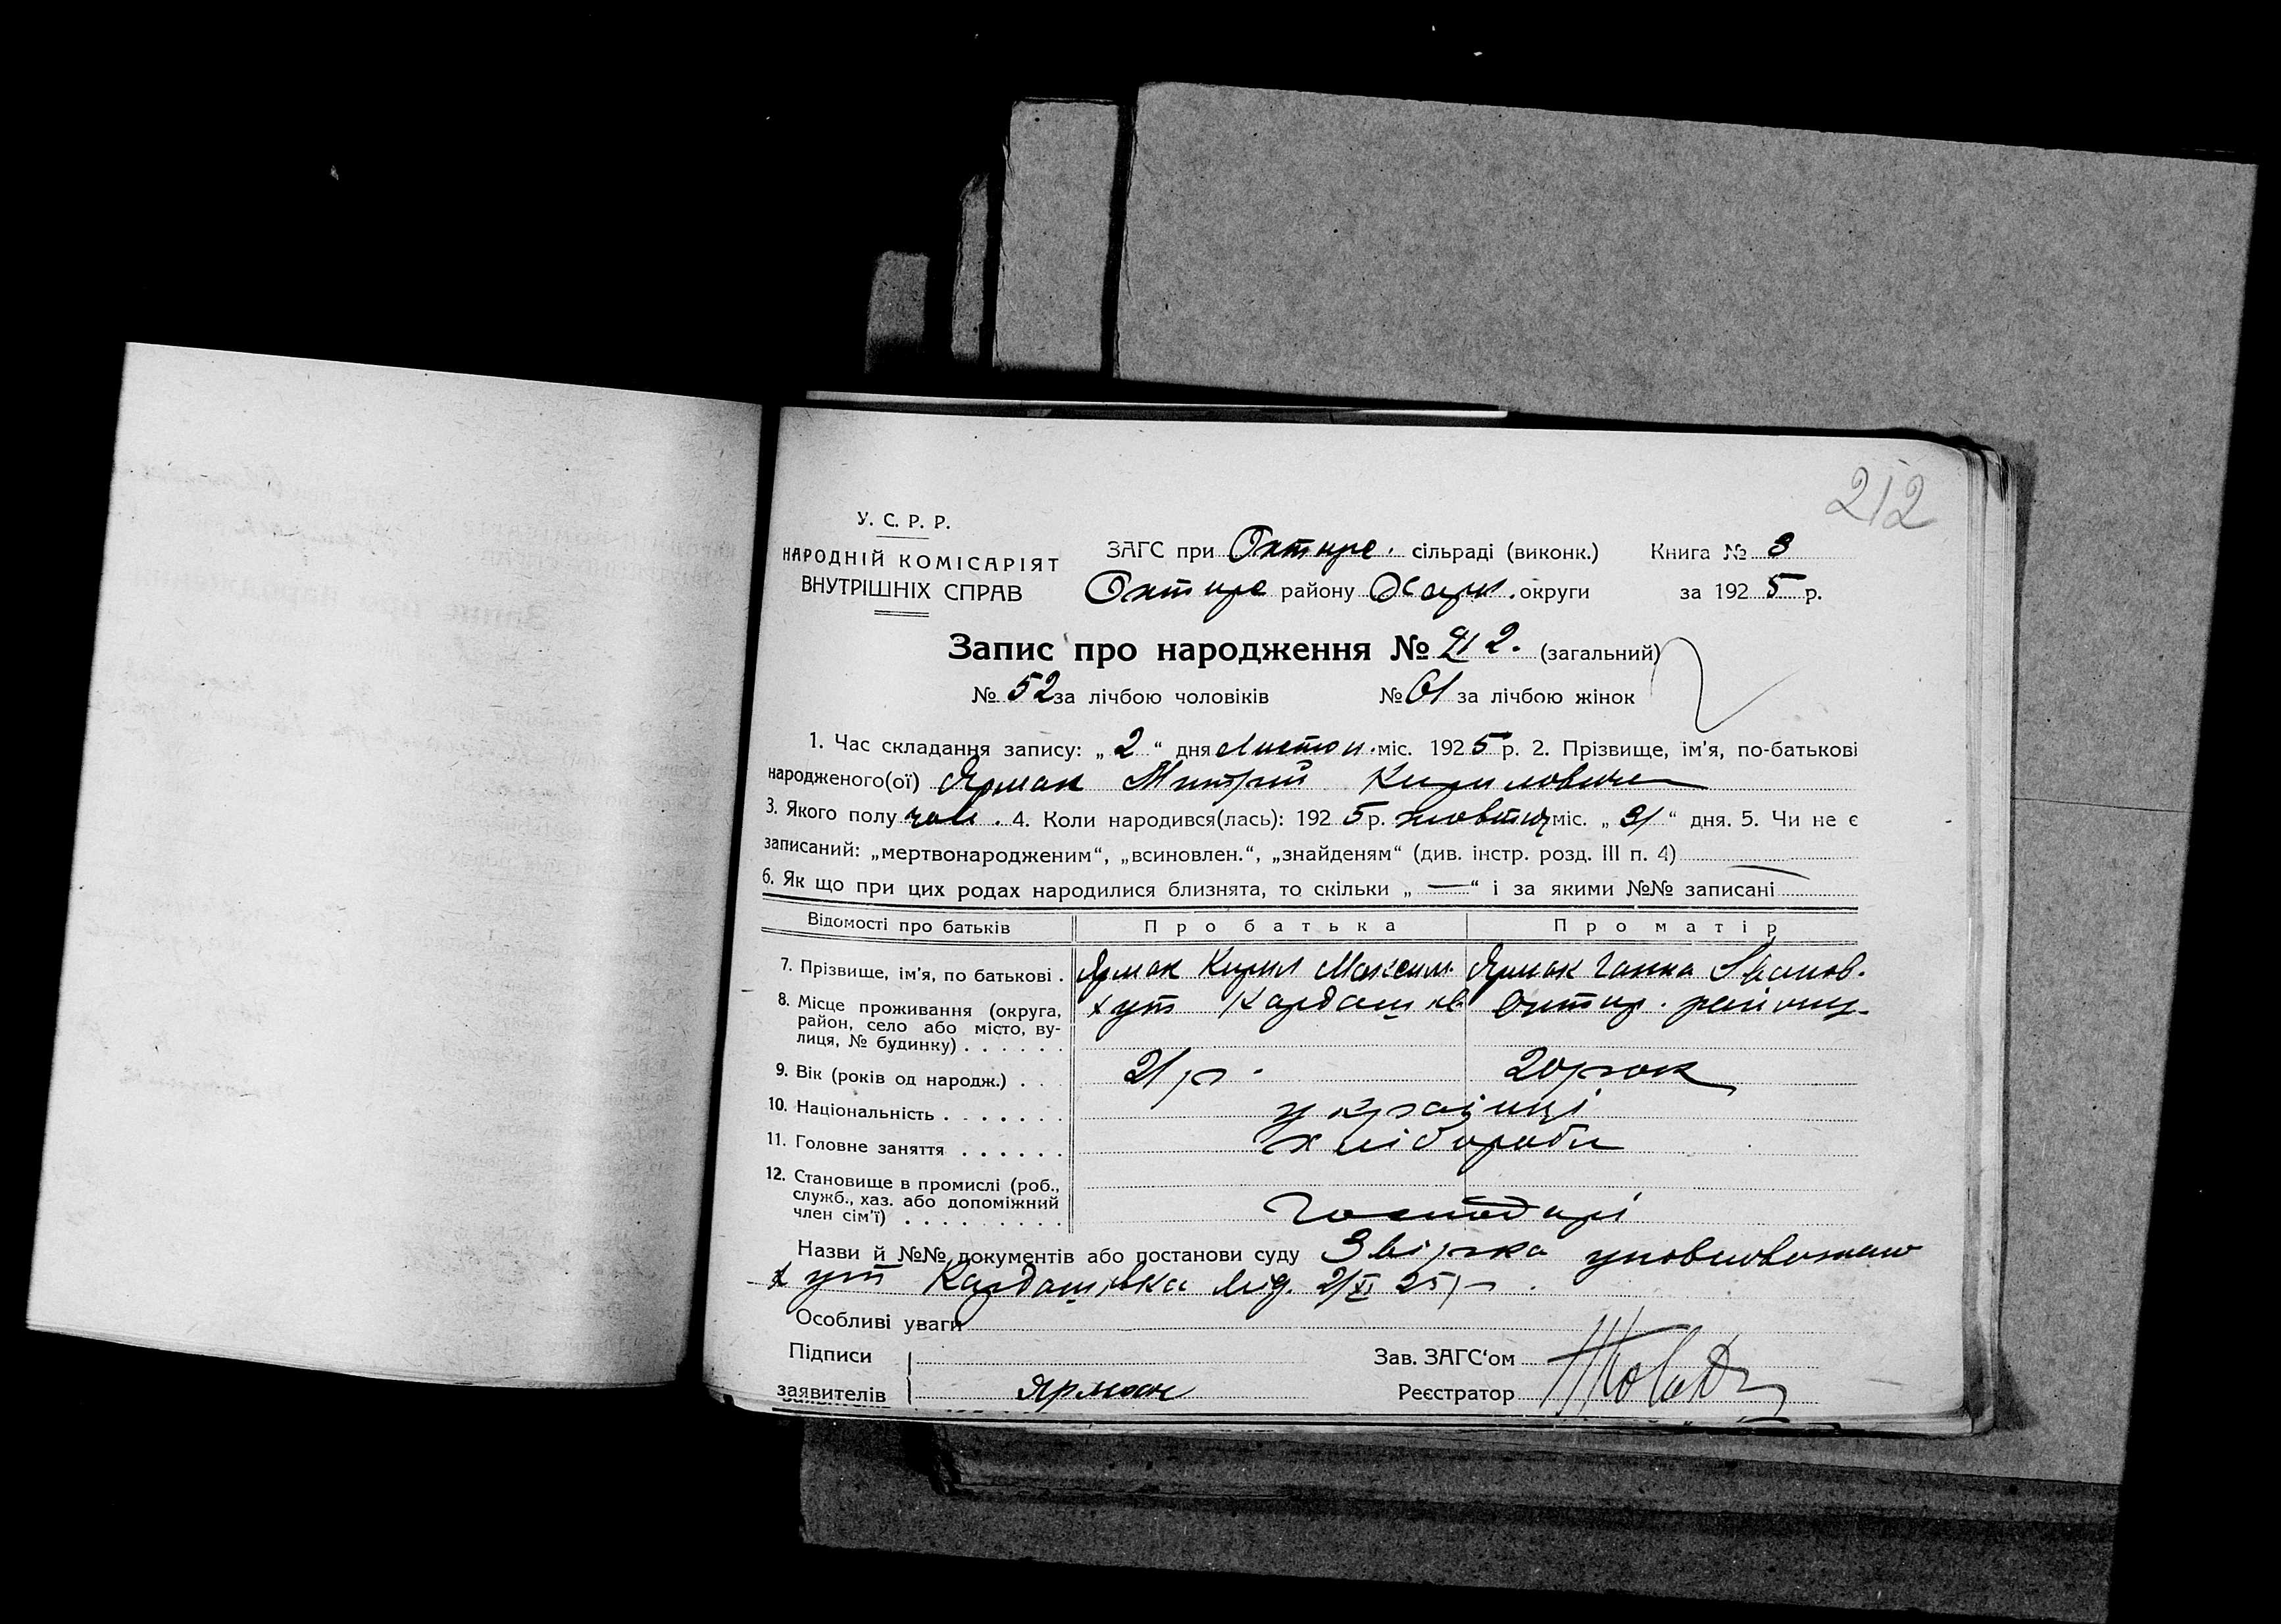 212
У. С. Р. Р.
НАРОДНІЙ КОМІСАРІЯТ
ВНУТРІШНІХ СПРАВ
ЗАГС при Охтирс. сільраді (виконк.) Книга № 3
Охтирс району Харк. округи за 1925 р.
Запис про народження № 212. (загальний)
№ 52 за лічбою чоловіків № 61 за лічбою жінок
1. Час складання запису: „ 2 “ дня Листоп. міс. 1925 р. 2. Прізвище, ім'я, по-батькові
народженого(ої) Ярмак Митрій Кирилович
3. Якого полу чол. 4. Коли народився(лась): 1925 р. жовтня міс. „ 31 “ дня. 5. Чи не є
записаний: „мертвонародженим“, „всиновлен.“, „знайденям“ (див. інстр. розд. III п. 4)
6. Як що при цих родах народилися близнята, то скільки „ — “ і за якими №№ записані
Відомості про батьків Про батька Про матір
7. Прізвище, ім'я, по батькові . Ярмак Кирил Максим. Ярмак Ганна Іванов.
8. Місце проживання (округа, хут Кардашівк Охтир. району
район, село або місто, ву-
лиця, № будинку) . . . . . .
9. Вік (років од народж.) . . . 21 р. 20 рок
10. Національність . . . . . . . українці
11. Головне заняття . . . . . . хлібороби
12. Становище в промислі (роб.,
служб., хаз. або допоміжний
член сім'ї) . . . . . . . . . . господарі
Назви й №№ документів або постанови суду Звірка уповноваженого
хут Кардашівка від. 2/XI 25 р.
Особливі уваги
Підписи Зав. ЗАГС‘ом
заявителів Ярмак Реєстратор